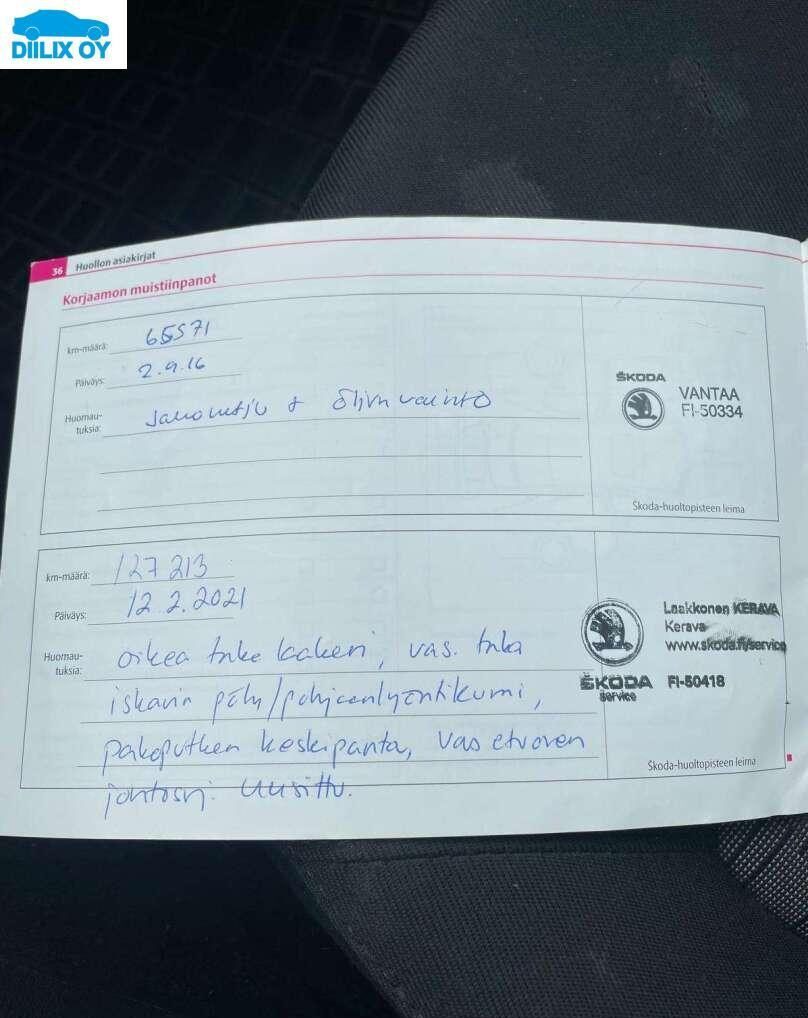 DIILIX OY
36 Huollon asiakirjat
Korjaamon muistiinpanot
km-määrä: 65571
Päiväys: 2.9.16
Huomau-
tuksia: jakohihna + öljynvaihto
ŠKODA
VANTAA
FI-50334
Škoda-huoltopisteen leima
km-määrä: 127 213
Päiväys: 12.2.2021
Huomau-
tuksia: oikea taka laakeri, vas. taka
iskarin pöly/pohjaanlyöntikumi,
pakoputken keskipanta, vas etuoven
johtosrj. Uusittu.
Laakkonen KERAVA
Kerava
www.skoda.fi/service
ŠKODA FI-50418
service
Škoda-huoltopisteen leima